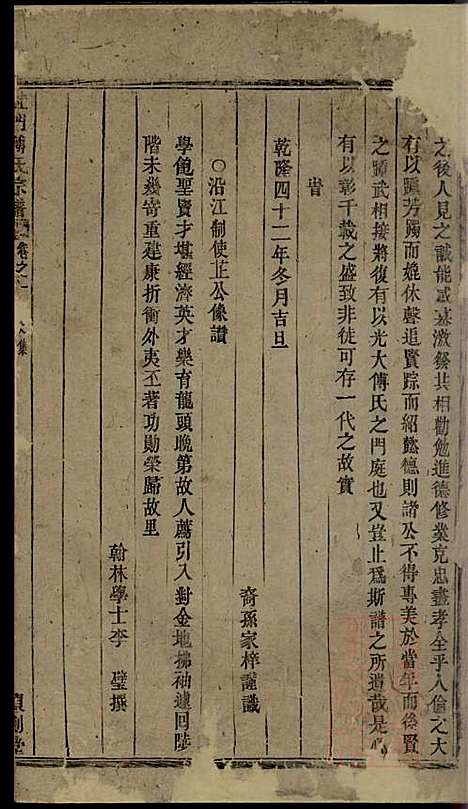 之後人見之誠能感慕激發其相勸勉進德修業克忠盡孝全乎人倫之大
有以踵芳躅而媲休聲追賢踪而紹懿德則諸公不得專美於當年而後賢
之踵武相接將復有以光大傅氏之門庭也又豈止為斯譜之所遺哉是
有以彰千載之盛致非徒可存一代之故實
旹
乾隆四十二年冬月吉旦
裔孫家梓謹識
○沿江制使芷公像讃
學飽聖賢才堪經濟英才樂育龍頭晚第故人薦引入對金地拂袖遽回陸
階未幾寄重建康折衝外夷丕著功勛榮歸故里
翰林學士李 璧撰
門傅氏宗譜 卷之一